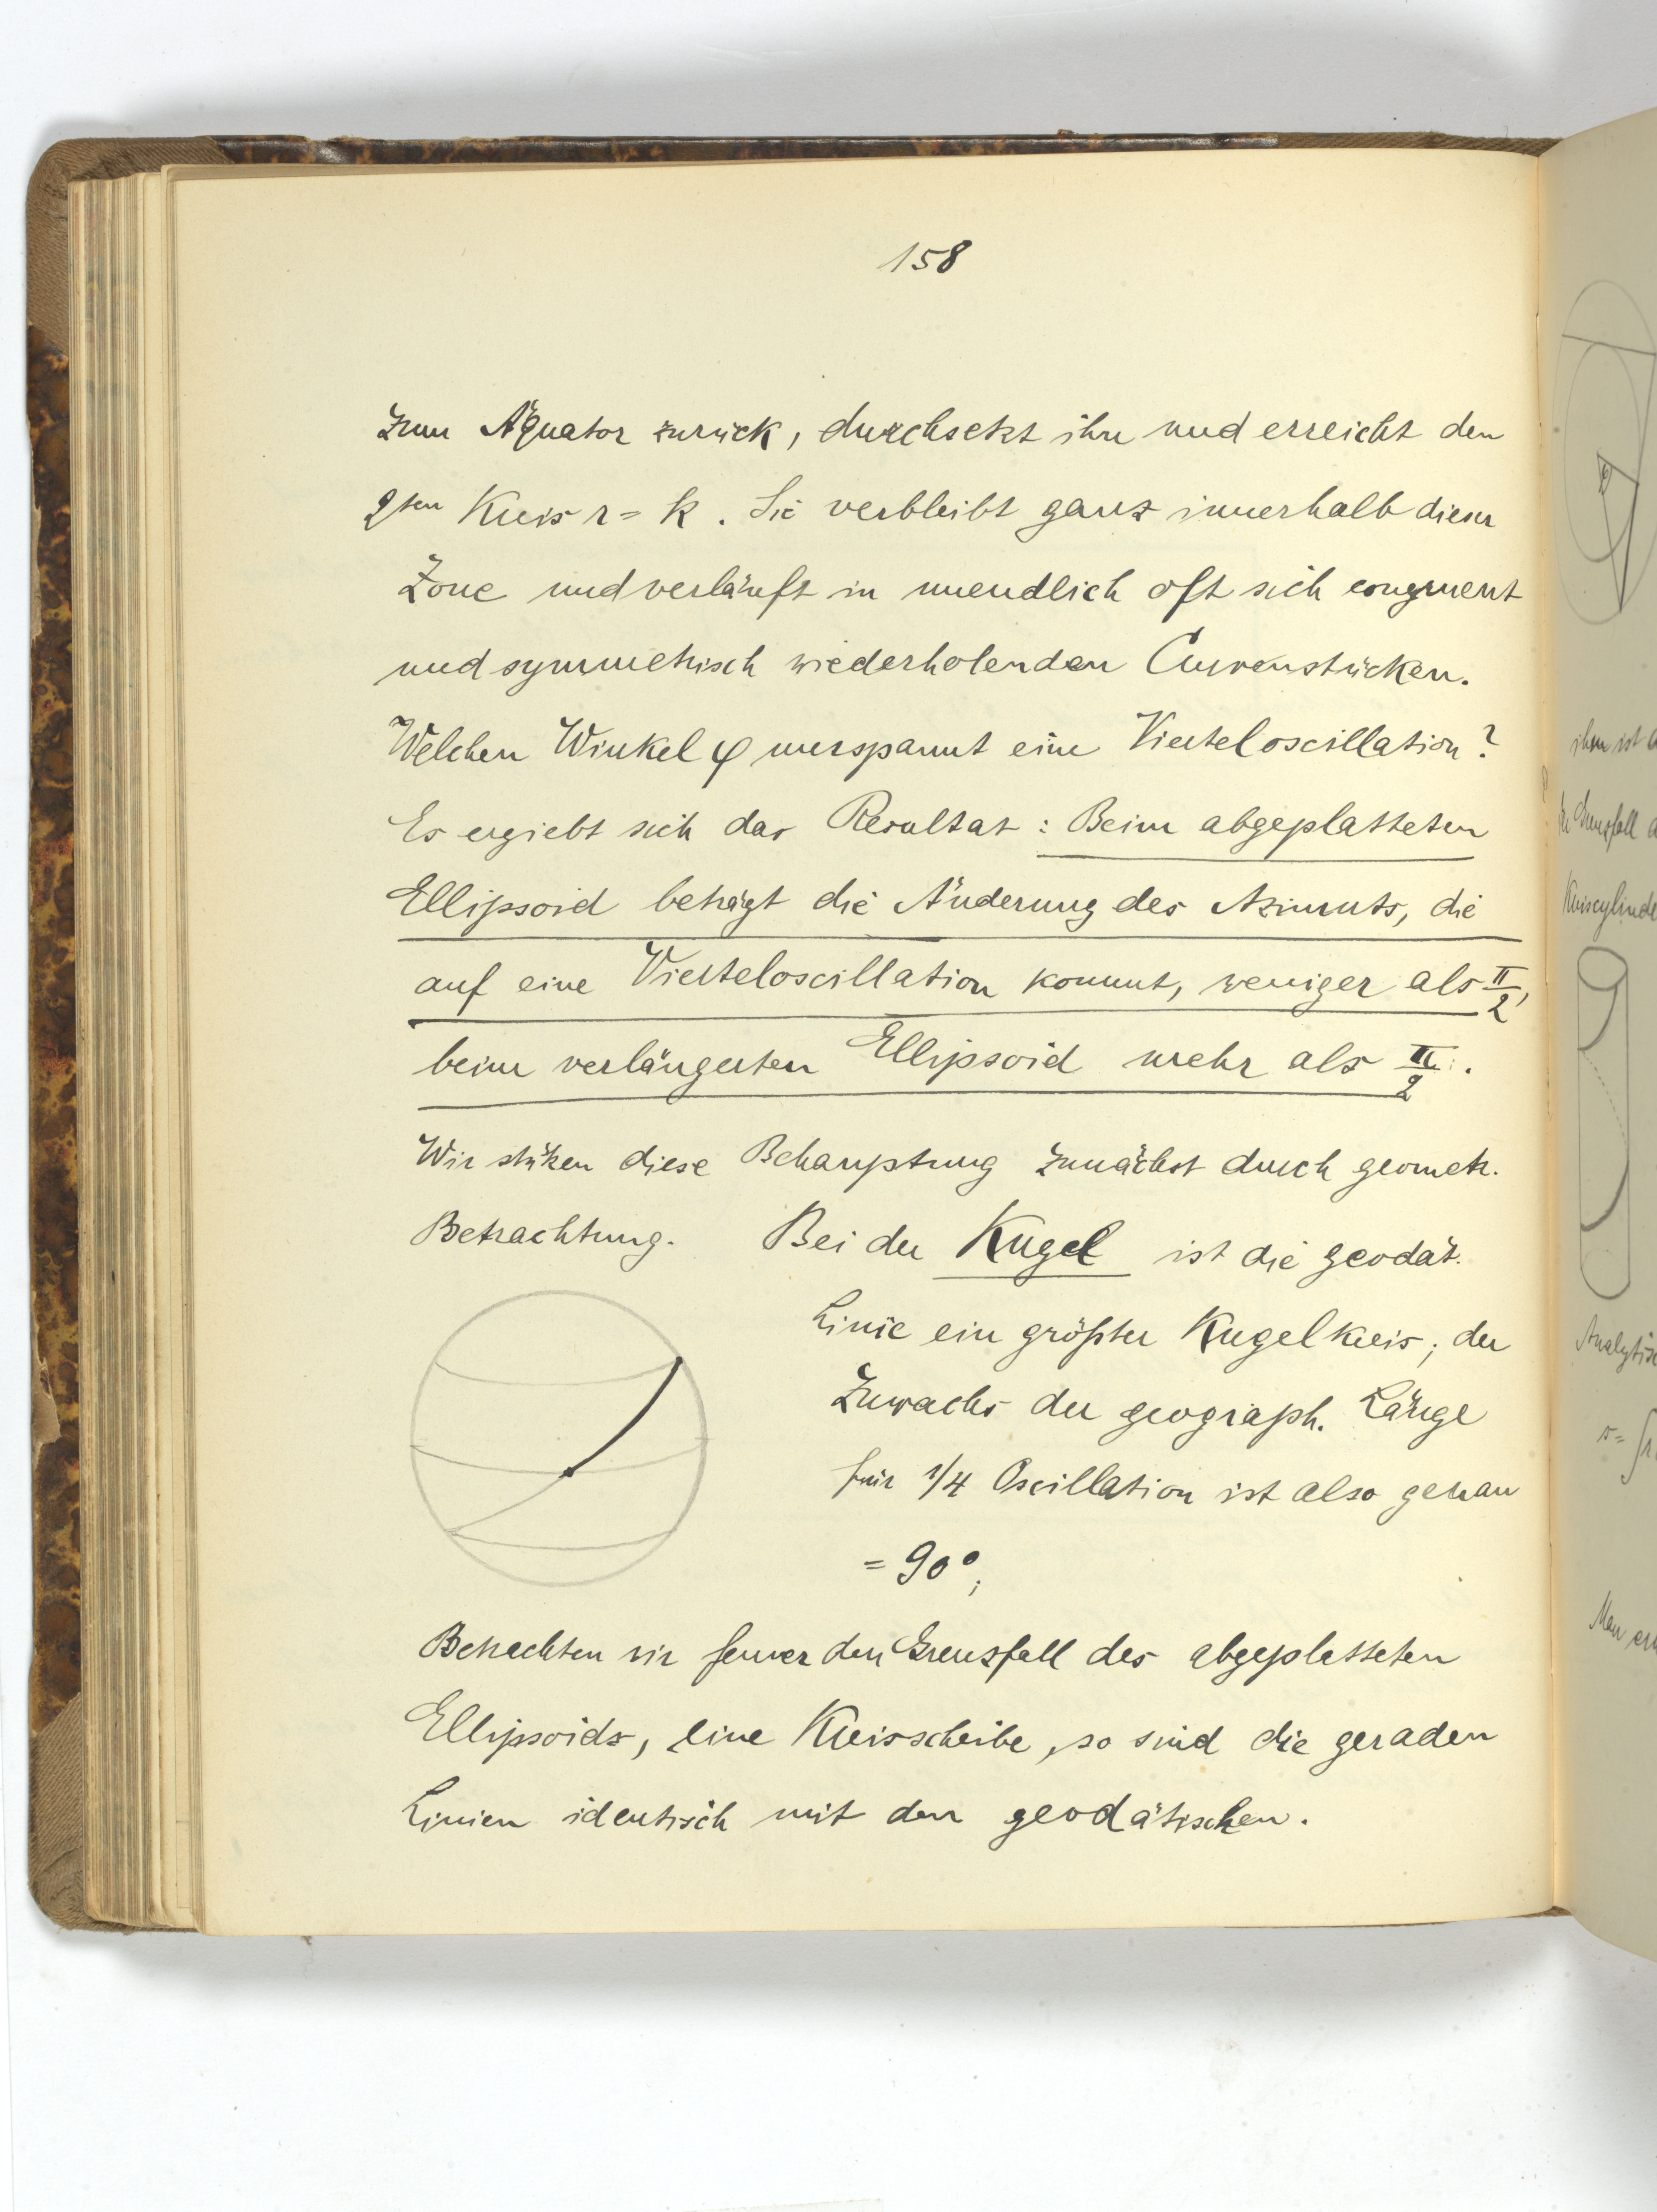 158
zum Äquator zurück, durchsetzt ihn und erreicht den
2ten Kreis r = k. Sie verbleibt ganz innerhalb dieser
Zone und verläuft in unendlich oft sich congruent
und symmetrisch wiederholenden Curvenstücken.
Welchen Winkel φ umspannt eine Vierteloscillation?
Es ergiebt sich das Resultat: Beim abgeplatteten
Ellipsoid beträgt die Änderung des Azimuts, die
auf eine Vierteloscillation kommt, weniger als π/2,
beim verlängerten Ellipsoid mehr als π/2.
Wir stüzen diese Behauptung zunächst durch geometr.
Betrachtung. Bei der Kugel ist die geodät.
Linie ein größter Kugelkreis; der
Zuwachs der geograph. Länge
für 1/4 Oscillation ist also genau
= 90°;
Betrachten wir ferner den Grenzfall des abgeplatteten
Ellipsoids, eine Kreisscheibe, so sind die geraden
Linien identisch mit den geodätischen.
ihm ist
Grenzfall
Kreiscylinde
Analytisc
Man